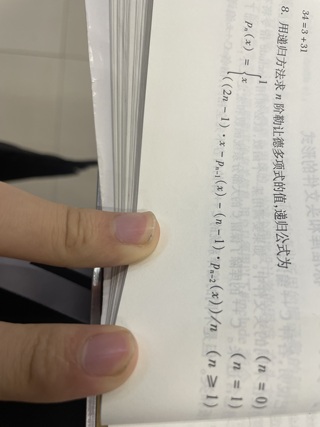 34 = 3 + 31
8. 用递归方法求 n 阶勒让德多项式的值,递归公式为
1 (n = 0)
pₙ(x) = { x (n = 1)
((2n − 1) · x − pₙ₋₁(x) − (n − 1) · pₙ₋₂(x))/n (n ⩾ 1)